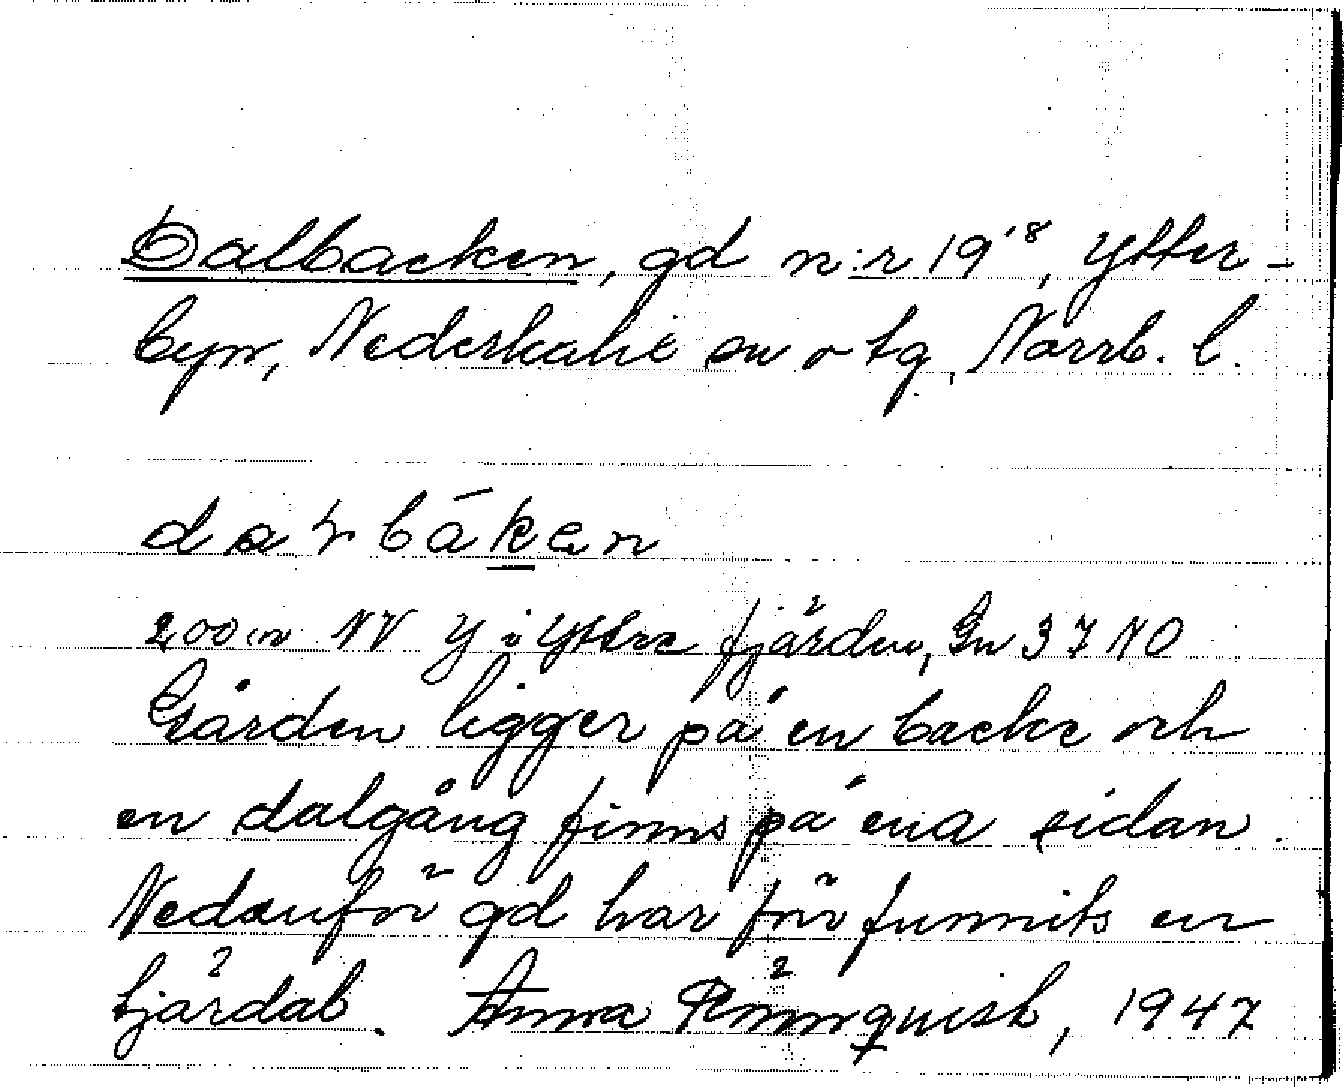 Dalbacken, gd n:r 19¹⁸, Ytter-
byn, Nederkalix sn o tg, Norrb. l.
dalbák̲en
200 m NV Y i Yttre fjärden, Gn 37 NO
Gården ligger på en backe och
en dalgång finns på ena sidan.
Nedanför gd har förr funnits en
tjärdal. Anna Rönnquist, 1947